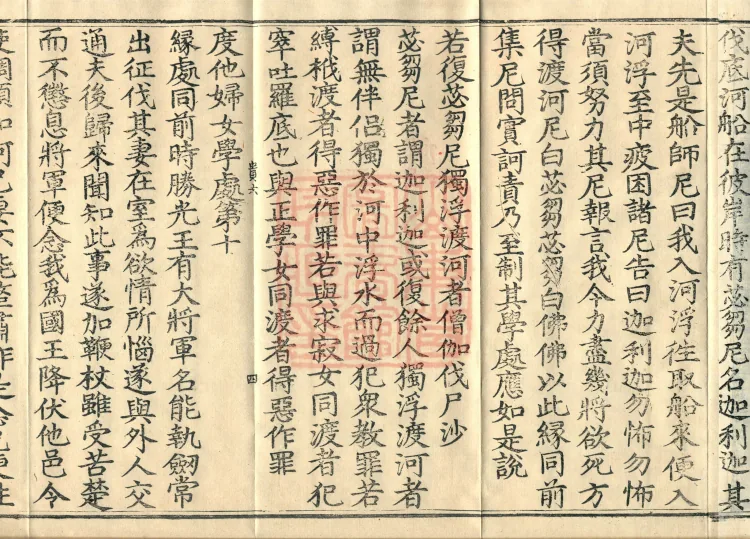 伐底河船在彼岸時有苾芻尼名迦利迦其
夫先是船師尼曰我入河浮往取船來便入
河浮至中疲困諸尼告曰迦利迦勿怖勿怖
當須努力其尼報言我今力盡幾將欲死方
得渡河尼白苾芻苾芻白佛佛以此緣同前
集尼問實訶責乃至制其學處應如是說
若復苾芻尼獨浮渡河者僧伽伐尸沙
苾芻尼者謂迦利迦或復餘人獨浮渡河者
謂無伴侶獨於河中浮水而過犯衆教罪若
縛栰渡者得惡作罪若與求寂女同渡者犯
窣吐羅底也與正學女同渡者得惡作罪
貴六 四
度他婦女學處第十
緣處同前時勝光王有大將軍名能執劒常
出征伐其妻在室爲欲情所惱遂與外人交
通夫後歸來聞知此事遂加鞭杖雖受苦楚
而不懲息將軍便念我爲國王降伏他邑令